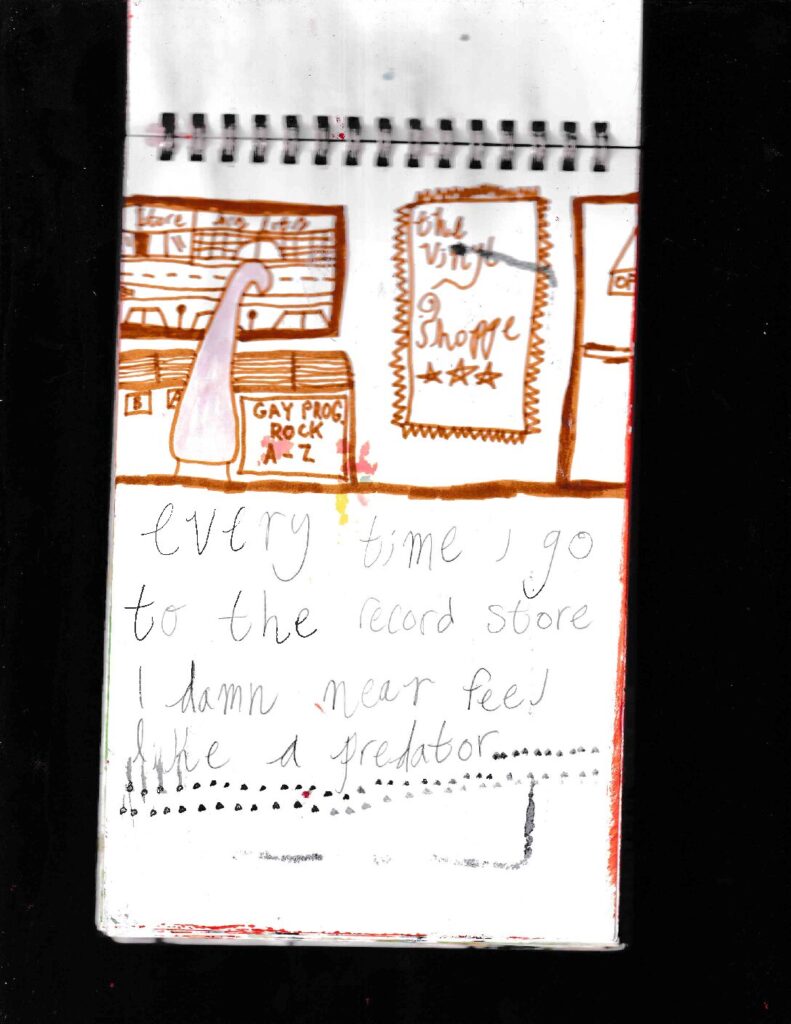 Store
the
Vinyl
Shoppe
B
A
GAY PROG.
ROCK
A-Z
OP
every time i go
to the record store
I damn near feel
like a predator